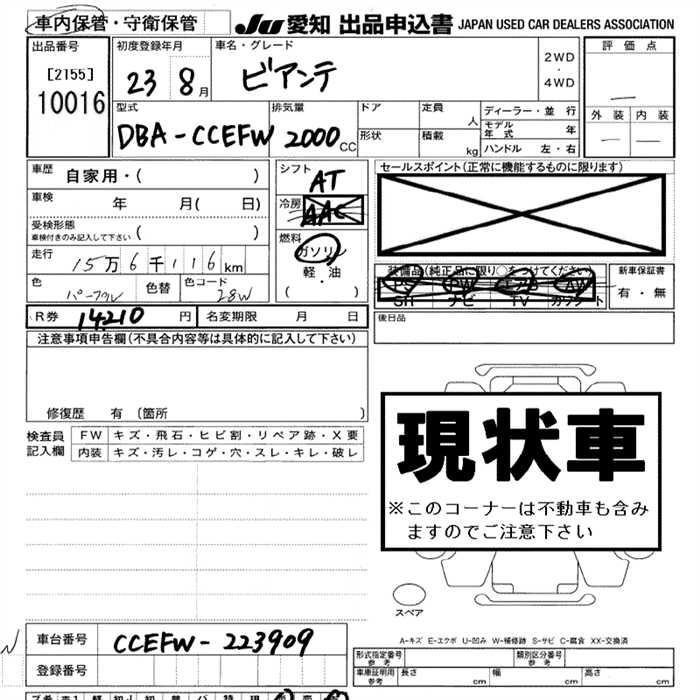 車内保管・守衛保管
JU 愛知 出品申込書 JAPAN USED CAR DEALERS ASSOCIATION
出品番号
[2155]
10016
初度登録年月
23 8月
車名・グレード
ビアンテ
2WD
・
4WD
評価点
—
外装 内装
— —
型式
DBA-CCEFW
排気量
2000cc
ドア
形状
定員 人
積載 kg
ディーラー・並行
モデル年式 年
ハンドル 左・右
車歴 自家用・( )
車検 年 月( 日)
受検形態
車検付きのみ記入して下さい ( )
走行 15万6千116km
色 パープル 色替 色コード 28W
シフト AT
冷房 AAC
燃料
ガソリン
軽・油
( )
セールスポイント(正常に機能するものに限ります)
装備品(純正品に限り○をつけてください)
PS PW エアB AW
SH ナビ TV カセット
新車保証書
有・無
後日品
R券 14210 円 名変期限 月 日
注意事項申告欄(不具合内容等は具体的に記入して下さい)
修復歴 有 [箇所 ]
検査員記入欄
FW キズ・飛石・ヒビ割・リペア跡・X要
内装 キズ・汚レ・コゲ・穴・スレ・キレ・破レ
現状車
※このコーナーは不動車も含み
ますのでご注意下さい
スペア
A-キズ E-エクボ U-凹み W-補修跡 S-サビ C-腐食 XX-交換済
車台番号 CCEFW-223909
登録番号
形式指定番号 参考
類別区分番号 参考
車庫証明用 参考 長さ cm 幅 cm 高さ cm